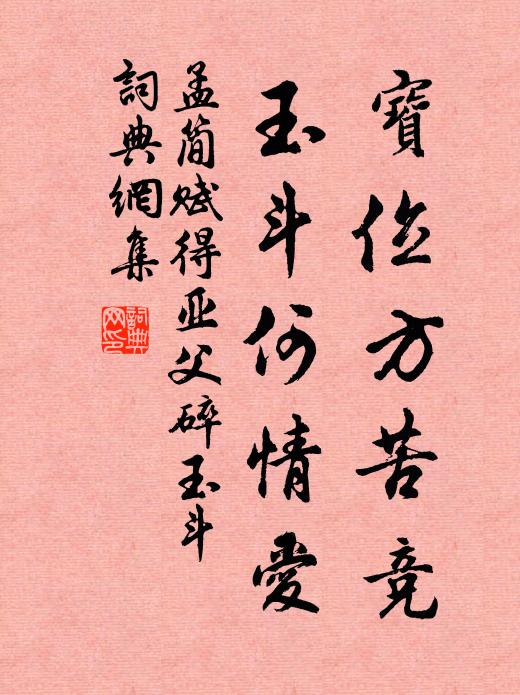 寶位方苦竞
玉斗何情愛
孟简赋得亚父碎玉斗
詞典網集
詞典
网印